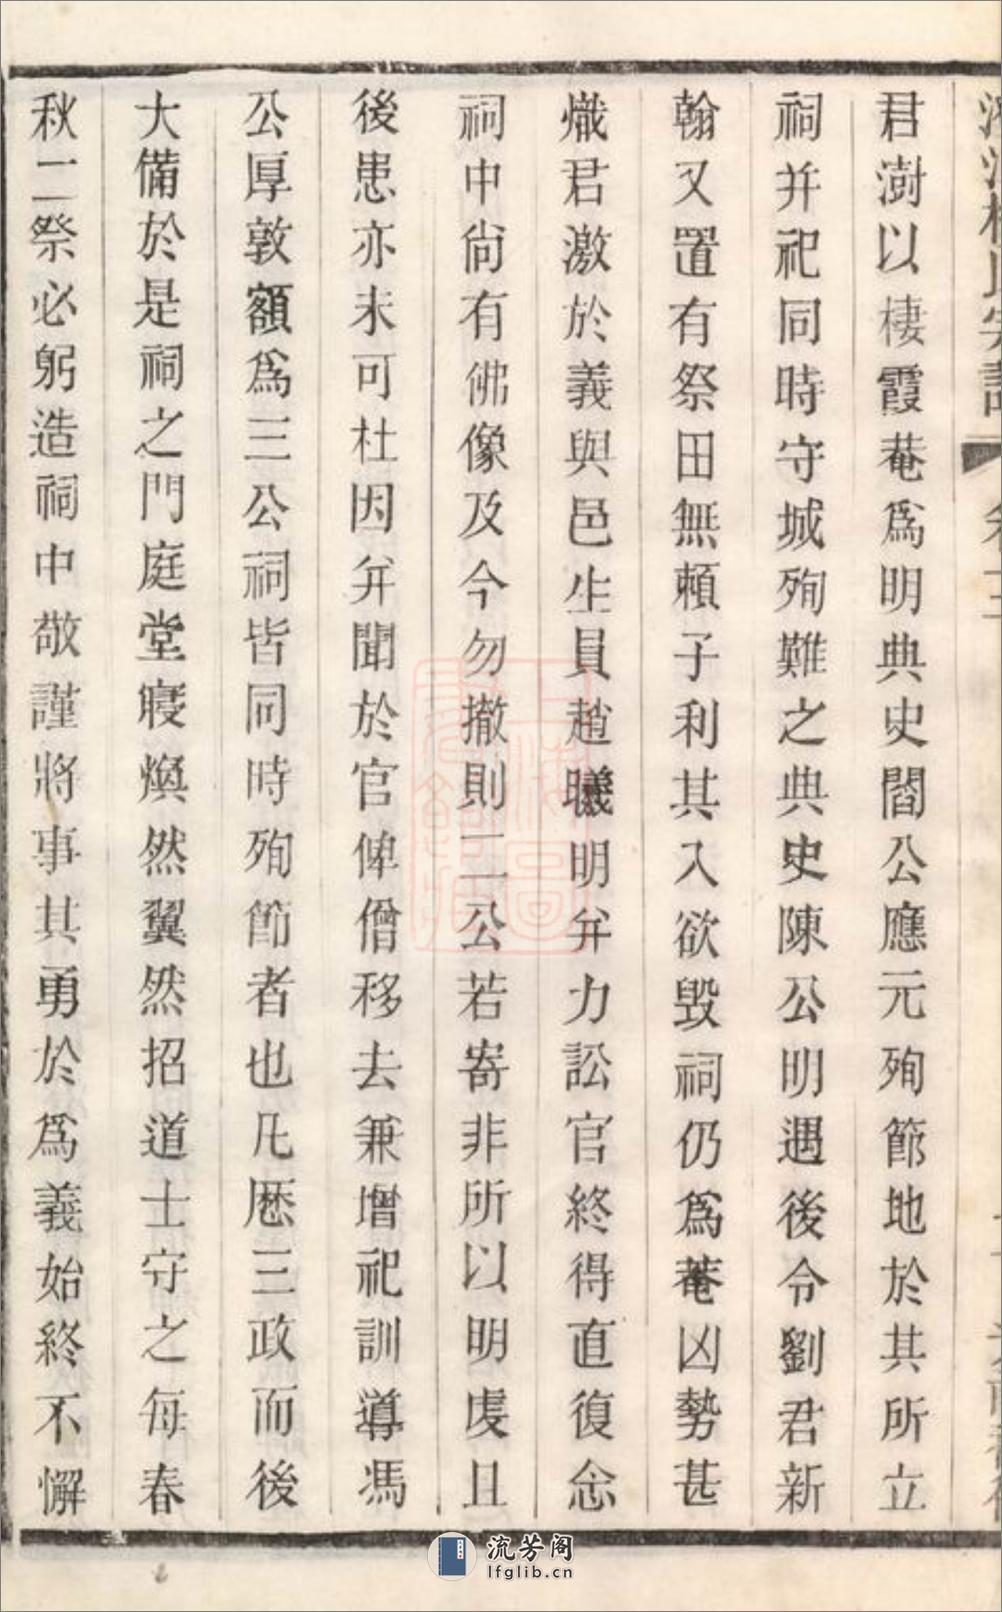 君澍以棲霞菴爲明典史閻公應元殉節地於其所立
祠并祀同時守城殉難之典史陳公明遇後令劉君新
翰又置有祭田無賴子利其入欲毀祠仍爲菴凶勢甚
熾君激於義與邑生員趙曦明弁力訟官終得直復念
祠中尙有佛像及今勿撤則二公若寄非所以明虔且
後患亦未可杜因弁聞於官俾僧移去兼增祀訓導馮
公厚敦額爲三公祠皆同時殉節者也凡歷三政而後
大備於是祠之門庭堂寢煥然翼然招道士守之每春
秋二祭必躬造祠中敬謹將事其勇於爲義始終不懈
流芳阁
lfglib.cn